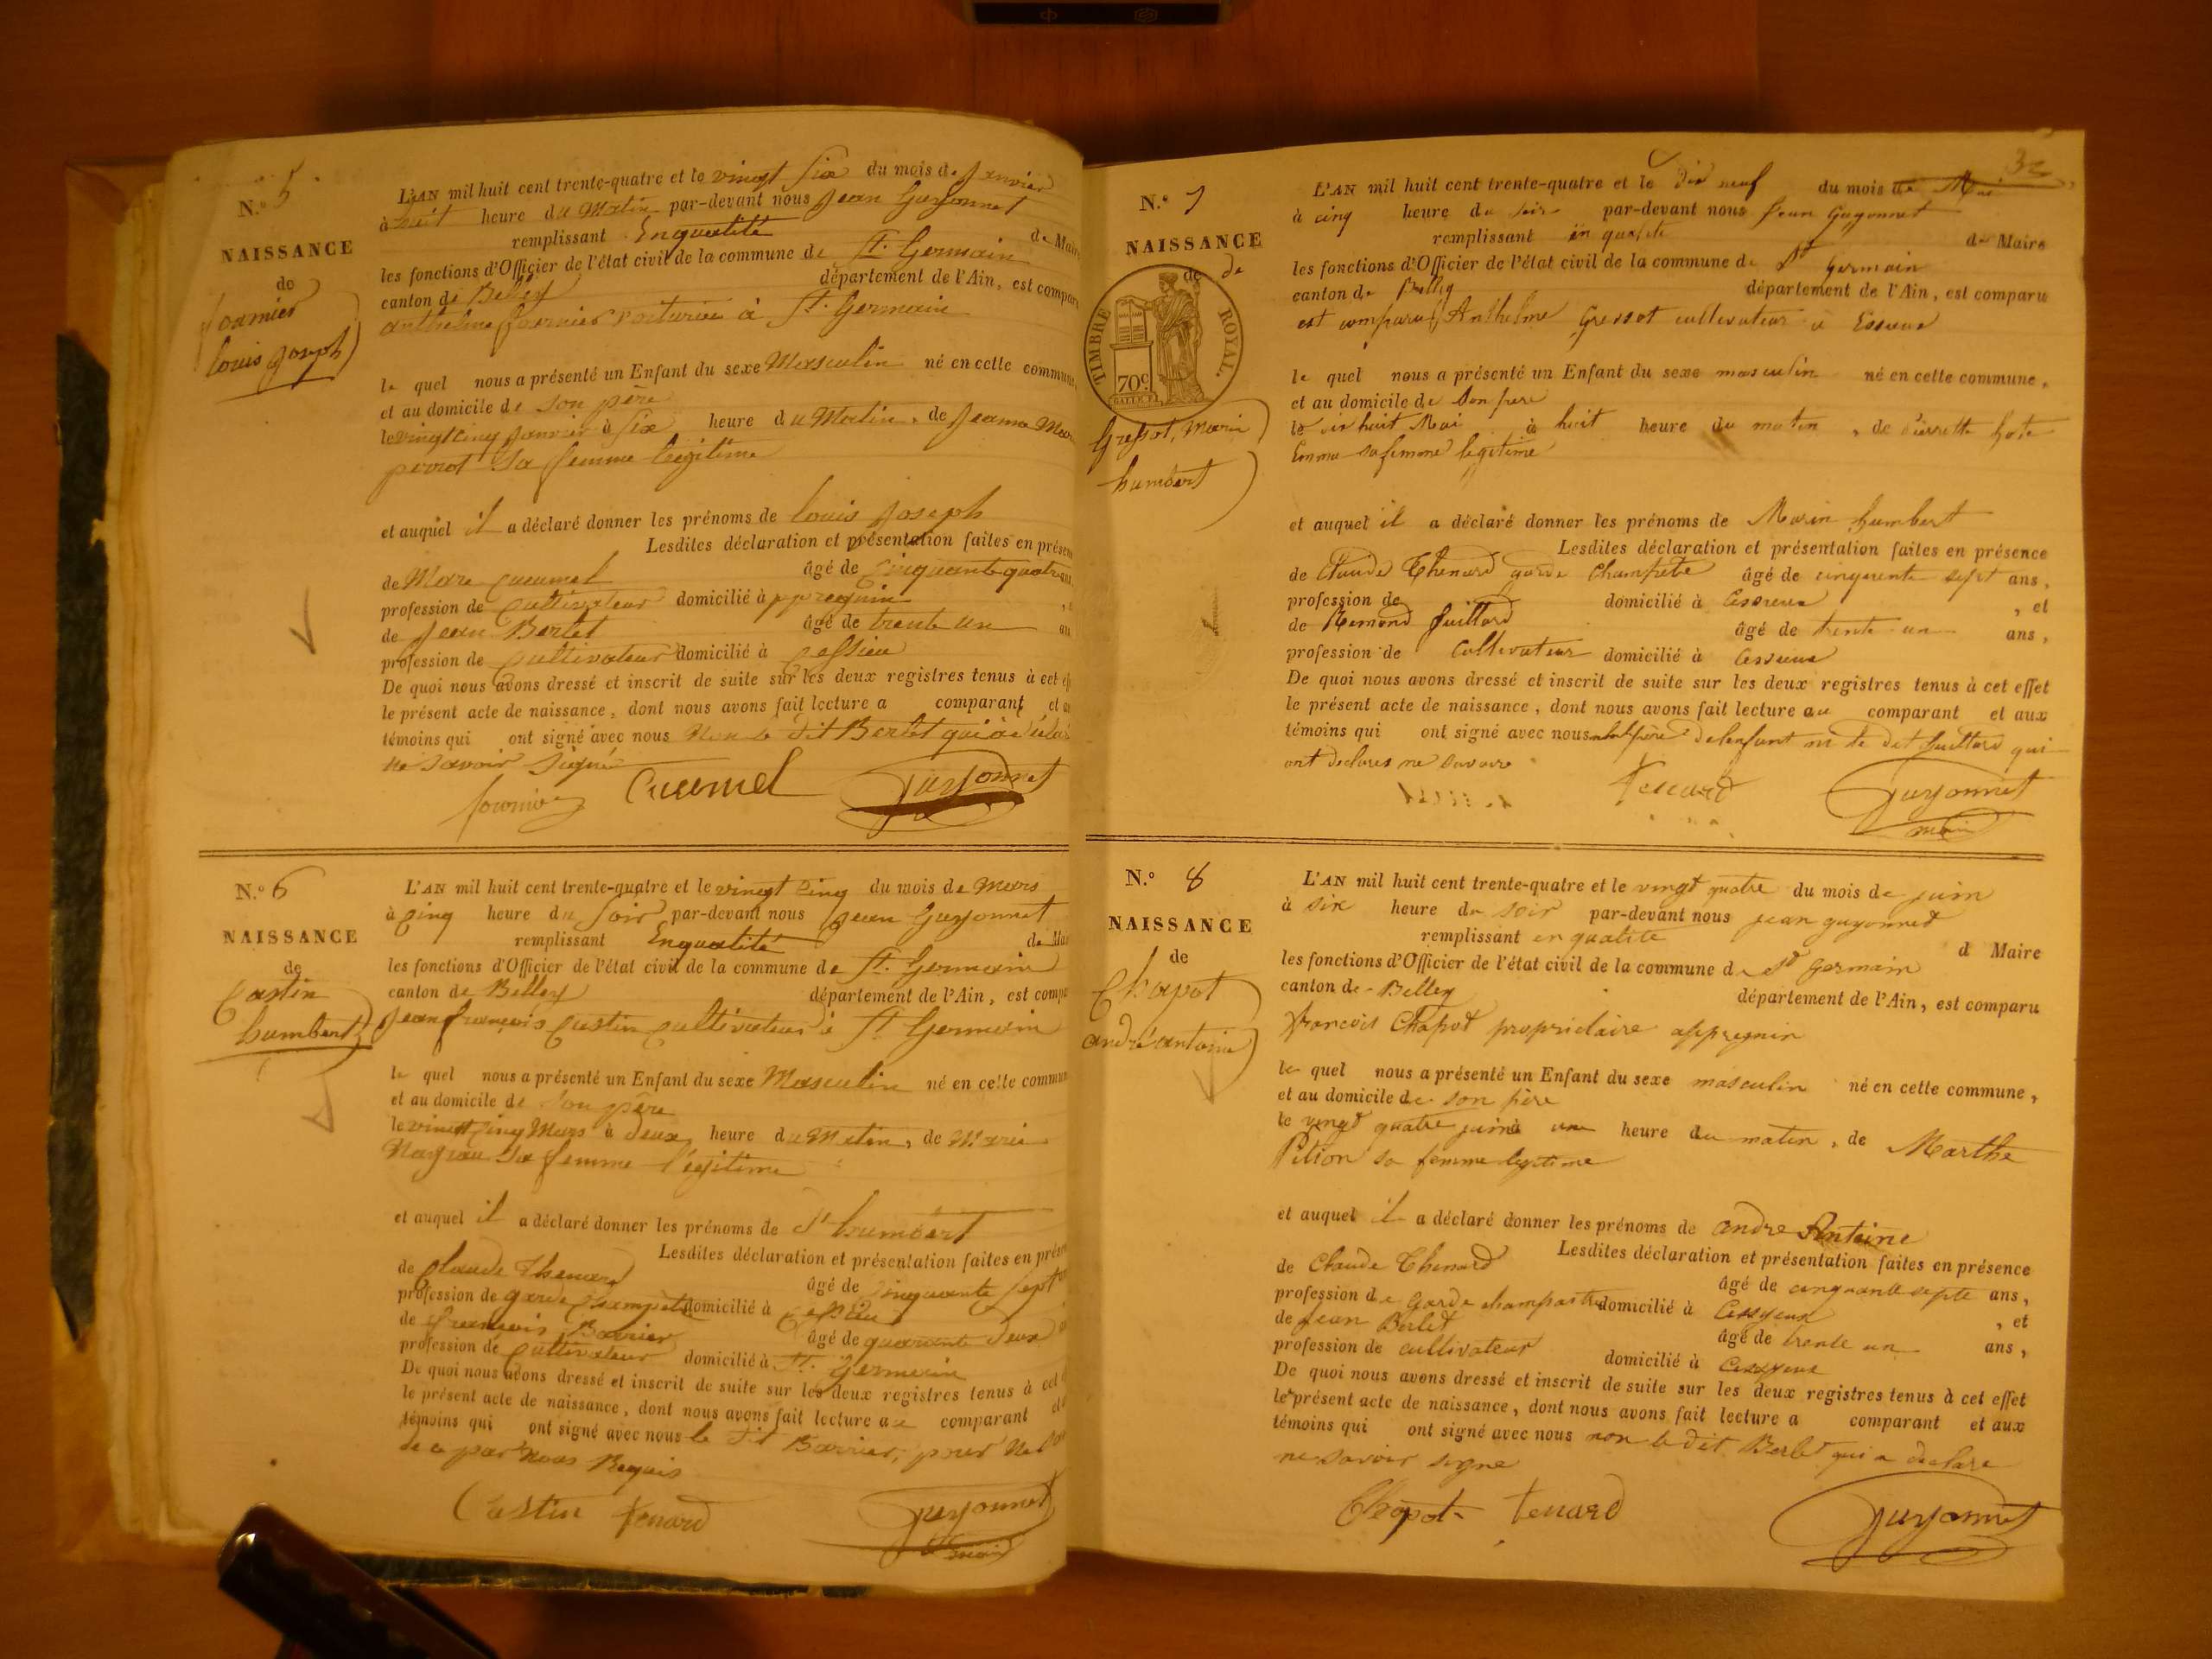 N.º 5
NAISSANCE
de
fournier
louis joseph
L'AN mil huit cent trente-quatre et le vingt six du mois de Janvier
à huit heure du Matin par-devant nous Jean Guyonnet
remplissant Enqualité de Maire
les fonctions d'Officier de l'état civil de la commune de St. Germain
canton de Belley département de l'Ain, est compar
anthelme fournier voiturier à St. Germain
le quel nous a présenté un Enfant du sexe Masculin né en cette commune,
et au domicile de son père
le vingt cinq Janvier à six heure du Matin, de Jeanne Mar
perrot Sa femme légitime
et auquel il a déclaré donner les prénoms de louis Joseph
Lesdites déclaration et présentation faites en présen
de Marc Cucumel âgé de Cinquante quatre ans,
profession de Cultivateur domicilié à appregnin
de Jean Berlet âgé de trente un
profession de Cultivateur domicilié à Cessieu
De quoi nous avons dressé et inscrit de suite sur les deux registres tenus à cet eff
le présent acte de naissance, dont nous avons fait lecture a comparant et au
témoins qui ont signé avec nous Non le dit Berlet qui a déla
ne savoir Signé
fournier Cucumel Guyonnet
N.º 6
NAISSANCE
de
Castin
humbert
L'AN mil huit cent trente-quatre et le vingt cinq du mois de Mars
à Cinq heure du Soir par-devant nous Jean Guyonnet
remplissant Enqualité de Mai
les fonctions d'Officier de l'état civil de la commune de St. Germain
canton de Belley département de l'Ain, est compa
Jean françois Castin Cultivateur à St Germain
le quel nous a présenté un Enfant du sexe Masculin né en cette commun
et au domicile de Son père
le vingt Cinq Mars à deux heure du Matin, de Marie
Sa femme légitime
et auquel il a déclaré donner les prénoms de St humbert
Lesdites déclaration et présentation faites en prés
de Claude Thenard âgé de Cinquante Sept
profession de garde Champètre domicilié à Cessieu
de francois Barrier âgé de quarante deux
profession de Cultivateur domicilié à St. Germain
De quoi nous avons dressé et inscrit de suite sur les deux registres tenus à cet
le présent acte de naissance, dont nous avons fait lecture au comparant et
témoins qui ont signé avec nous le dit Barrier, pour Ne
de ce par Nous Requis
Castin tenard Guyonnet
maire
32
N.º 7
NAISSANCE
de de
TIMBRE ROYAL.
70c
Gressot, Marin
humbert
L'AN mil huit cent trente-quatre et le Dix neuf du mois de Mai
à cinq heure du soir par-devant nous Jean Guyonnet
remplissant en qualité de Maire
les fonctions d'Officier de l'état civil de la commune de St germain
canton de Belley département de l'Ain, est comparu
est comparu Anthelme Gressot cultivateur à Essieux
le quel nous a présenté un Enfant du sexe masculin né en cette commune,
et au domicile de Son pere
le dix huit Mai à huit heure du matin, de Pierrette
sa femme legitime
et auquel il a déclaré donner les prénoms de Marin humbert
Lesdites déclaration et présentation faites en présence
de Claude Thenard garde Champetre âgé de cinquante sept ans,
profession de domicilié à Cessieux, et
de Remond Juillard âgé de trente un ans,
profession de Cultivateur domicilié à Cessieux
De quoi nous avons dressé et inscrit de suite sur les deux registres tenus à cet effet
le présent acte de naissance, dont nous avons fait lecture au comparant et aux
témoins qui ont signé avec nous père delenfant ni le dit Juillard qui
ont declares ne savoir
tenard Guyonnet
maire
N.º 8
NAISSANCE
de
Chapot
andré antoine
L'AN mil huit cent trente-quatre et le vingt quatre du mois de juin
à six heure du soir par-devant nous jean guyonnet
remplissant en qualite d Maire
les fonctions d'Officier de l'état civil de la commune de St germain
canton de Belley département de l'Ain, est comparu
francois Chapot propriétaire appregnin
le quel nous a présenté un Enfant du sexe masculin né en cette commune,
et au domicile de son père
le vingt quatre juin à une heure du matin, de Marthe
Pition sa femme legitime
et auquel il a déclaré donner les prénoms de andre Antoine
Lesdites déclaration et présentation faites en présence
de Claude Thenard âgé de cinquante septe ans,
profession de garde champaitre domicilié à Cessyeux, et
de Jean Berlet âgé de trente un ans,
profession de cultivateur domicilié à Cessyeux
De quoi nous avons dressé et inscrit de suite sur les deux registres tenus à cet effet
le présent acte de naissance, dont nous avons fait lecture a comparant et aux
témoins qui ont signé avec nous non le dit Berlet qui a declare
ne savoir signe
Chapot tenard Guyonnet